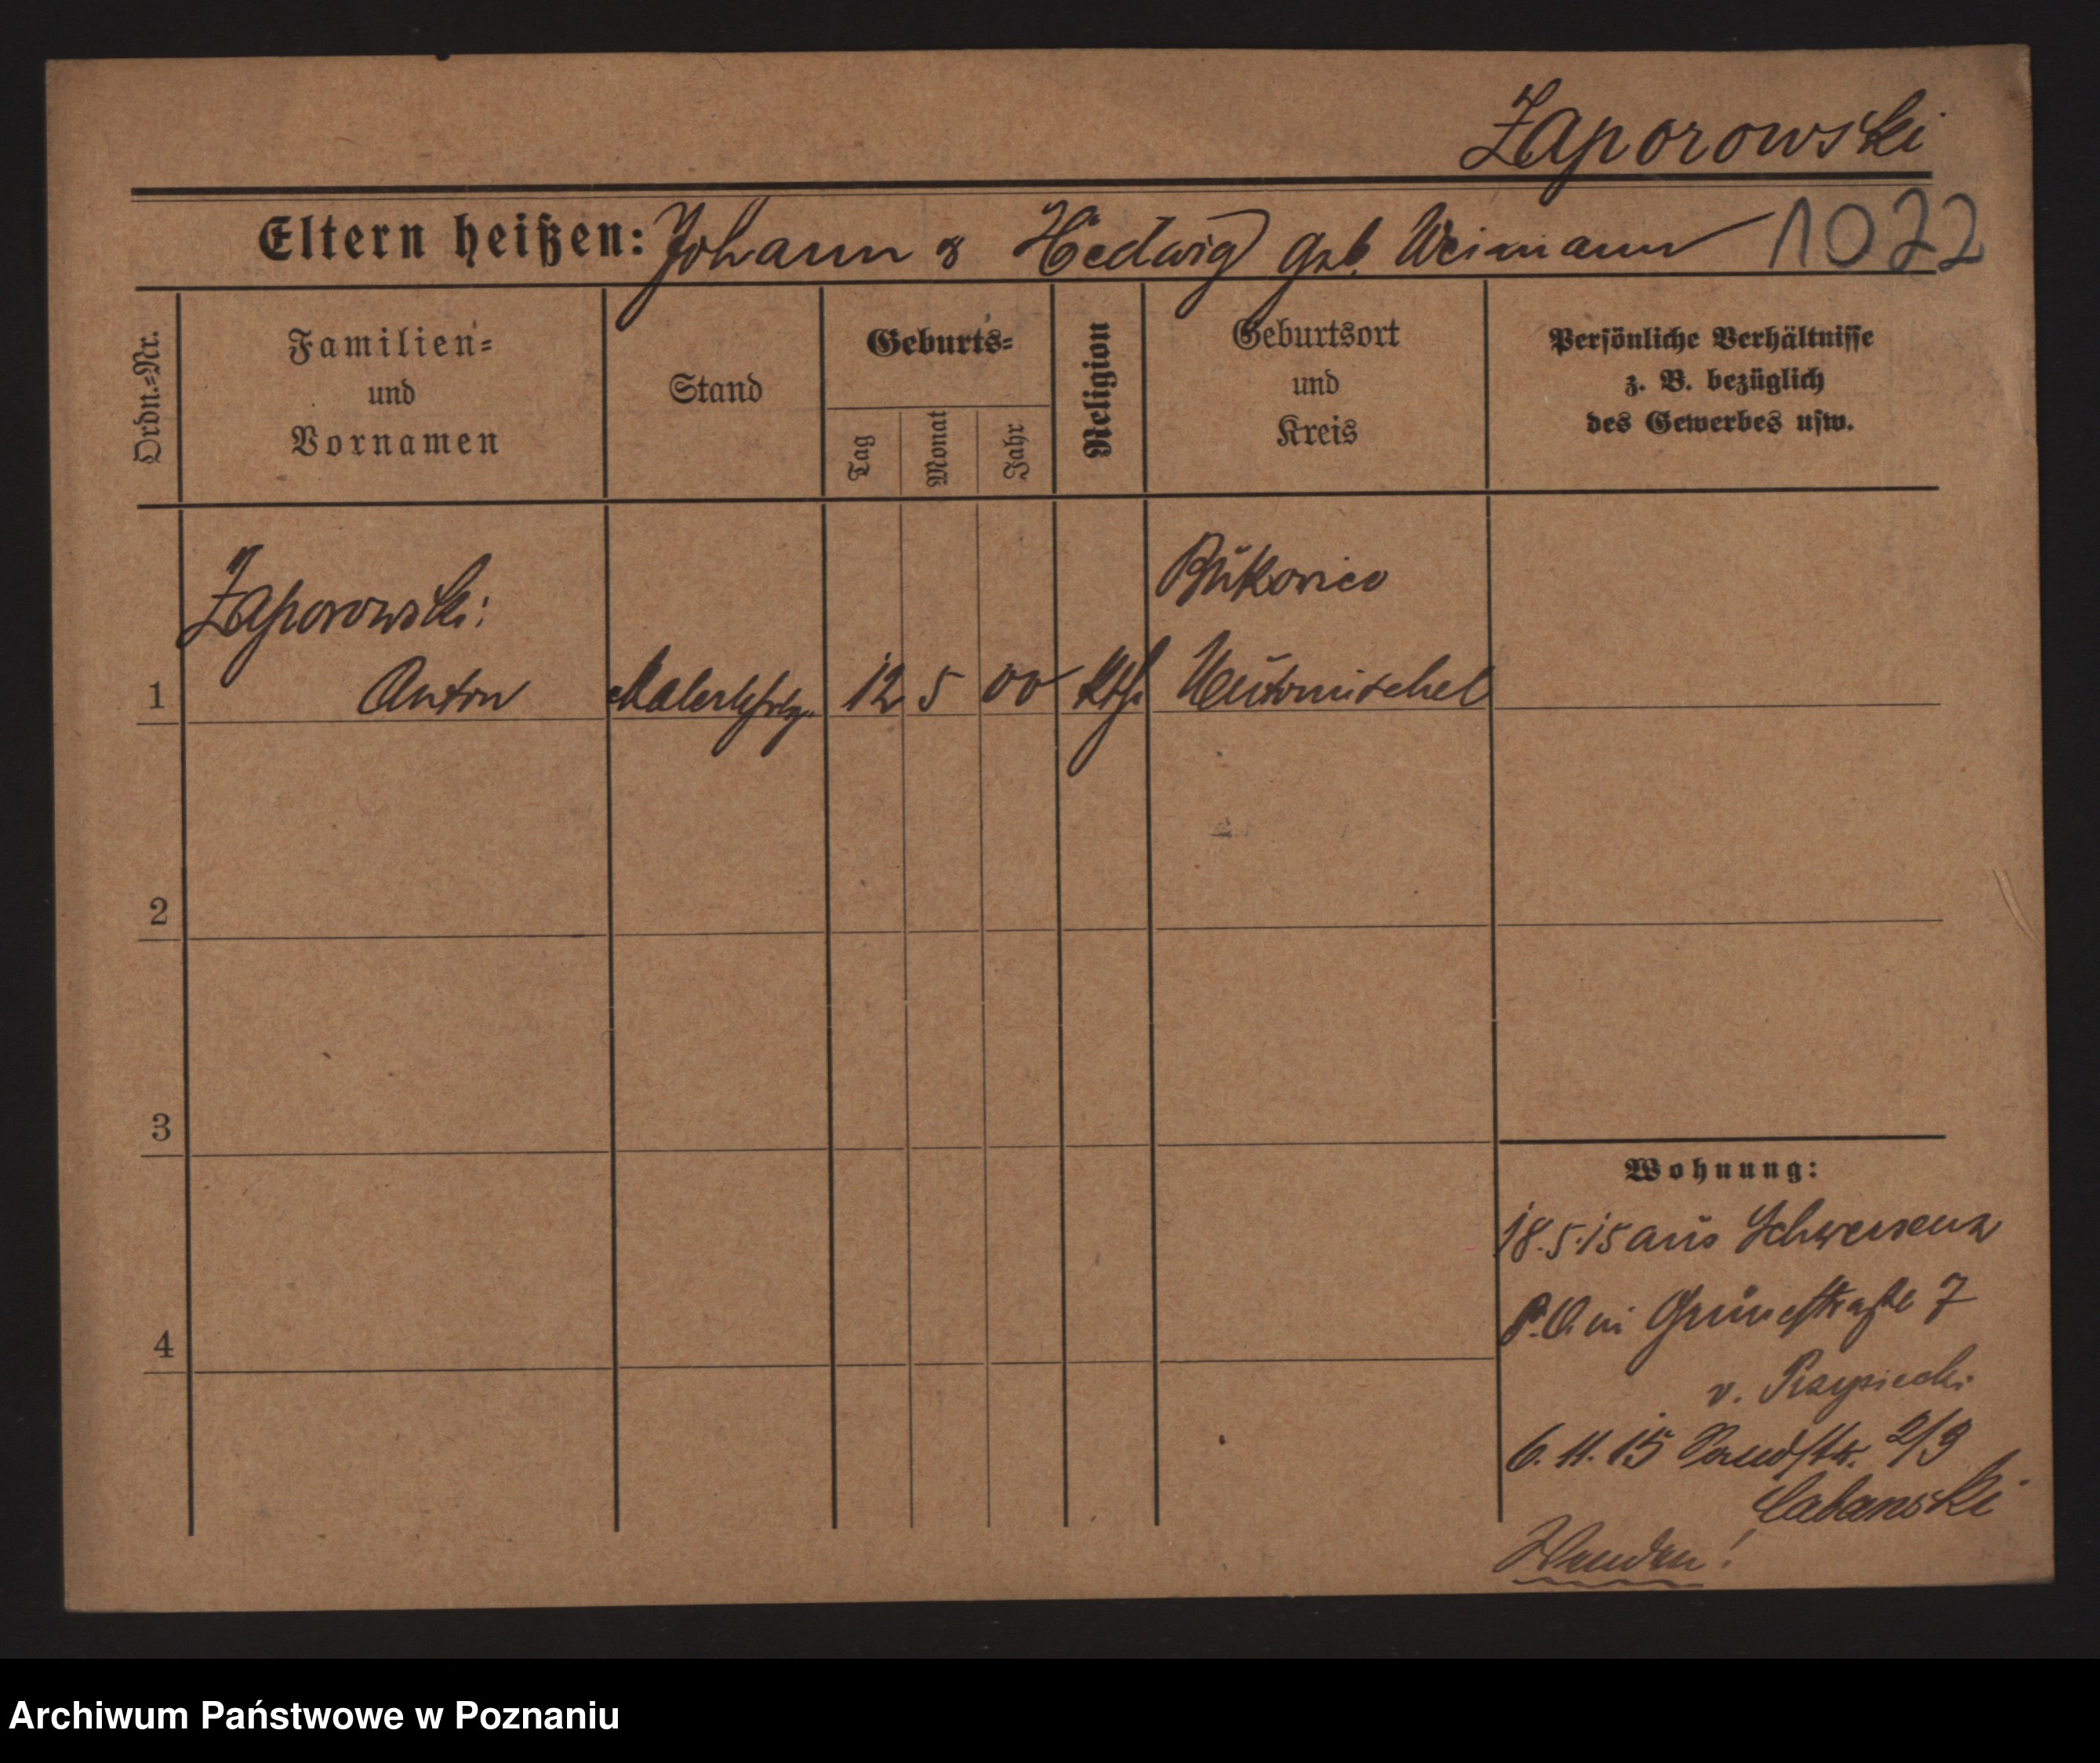 Zaporowski
Eltern heißen: Johann & Hedwig geb. Weimann 1022
Ordn.-Nr.
Familien-
und
Vornamen
Stand
Geburts-
Tag
Monat
Jahr
Religion
Geburtsort
und
Kreis
Persönliche Verhältnisse
z. B. bezüglich
des Gewerbes usw.
Zaporowski:
Bukowiec
1 Anton 12 5 00 kth. Neutomischel
2
3
4
Wohnung:
18.5.15 aus Schwersenz
Grünestraße 7
v.
6.11.15 Sandstr. 2/3
Cabanski
Wenden!
Archiwum Państwowe w Poznaniu